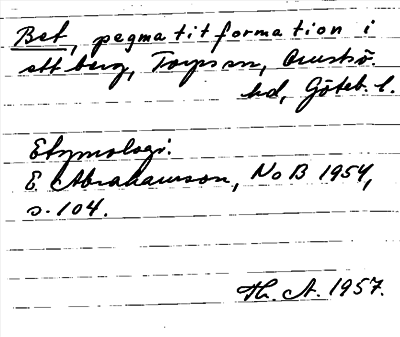 Bet, pegmatitformation i
ett berg, Torps sn, Orusts
hd, Göteb. l.
Etymologi:
E. Abrahamson, NoB 1954,
s. 104.
Th. A. 1957.